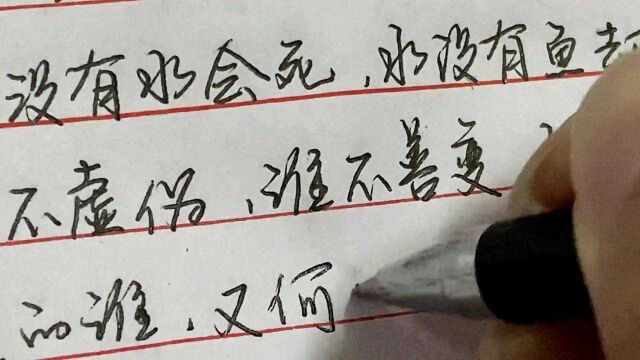 没有水会死，水没有鱼
不虚伪，谁不善变
的谁，又何